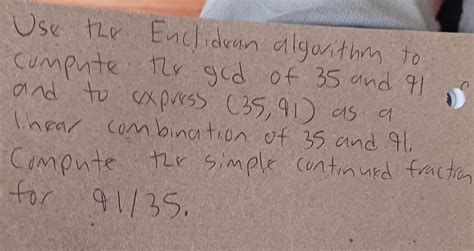 Use the Euclidean algorithm to
compute the gcd of 35 and 91
and to express (35,91) as a
linear combination of 35 and 91.
Compute the simple continued fraction
for 91/35.